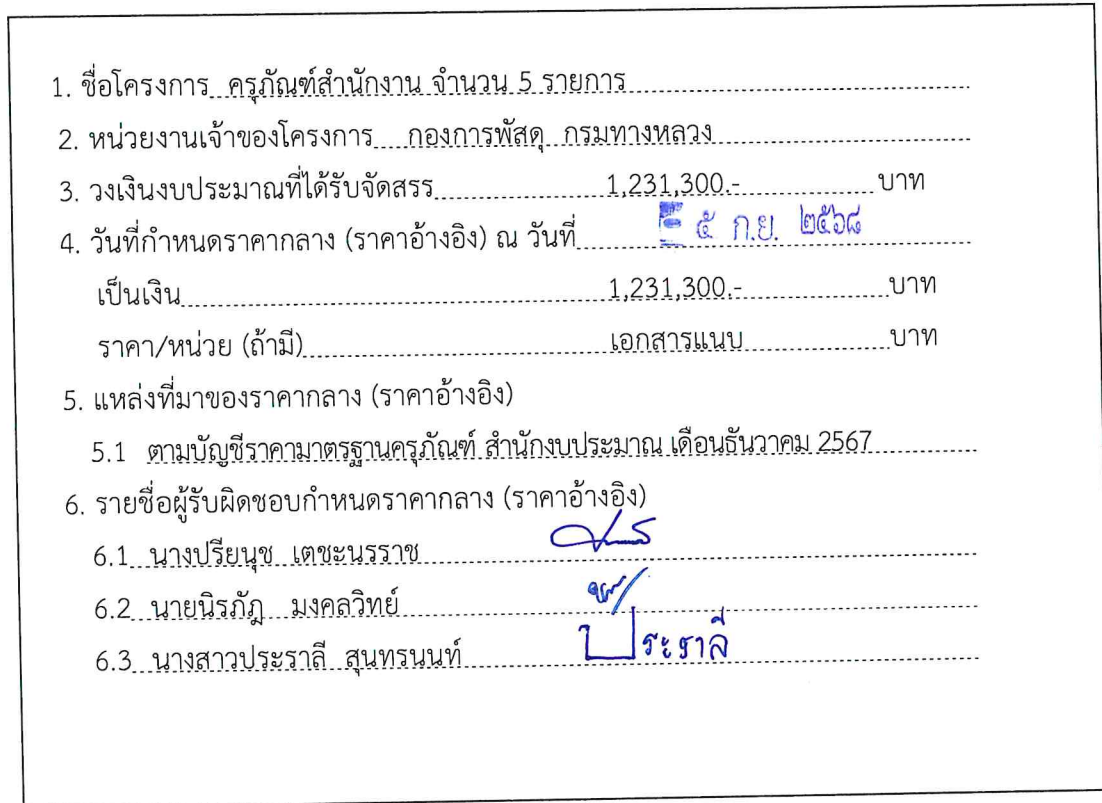 1. ชื่อโครงการ ครุภัณฑ์สำนักงาน จำนวน 5 รายการ
2. หน่วยงานเจ้าของโครงการ กองการพัสดุ กรมทางหลวง
3. วงเงินงบประมาณที่ได้รับจัดสรร 1,231,300.- บาท
4. วันที่กำหนดราคากลาง (ราคาอ้างอิง) ณ วันที่ ๕ ก.ย. ๒๕๖๘
เป็นเงิน 1,231,300.- บาท
ราคา/หน่วย (ถ้ามี) เอกสารแนบ บาท
5. แหล่งที่มาของราคากลาง (ราคาอ้างอิง)
5.1 ตามบัญชีราคามาตรฐานครุภัณฑ์ สำนักงบประมาณ เดือนธันวาคม 2567
6. รายชื่อผู้รับผิดชอบกำหนดราคากลาง (ราคาอ้างอิง)
6.1 นางปรียนุช เตชะนรราช
6.2 นายนิรภัฎ มงคลวิทย์
6.3 นางสาวประราลี สุนทรนนท์ ประราลี